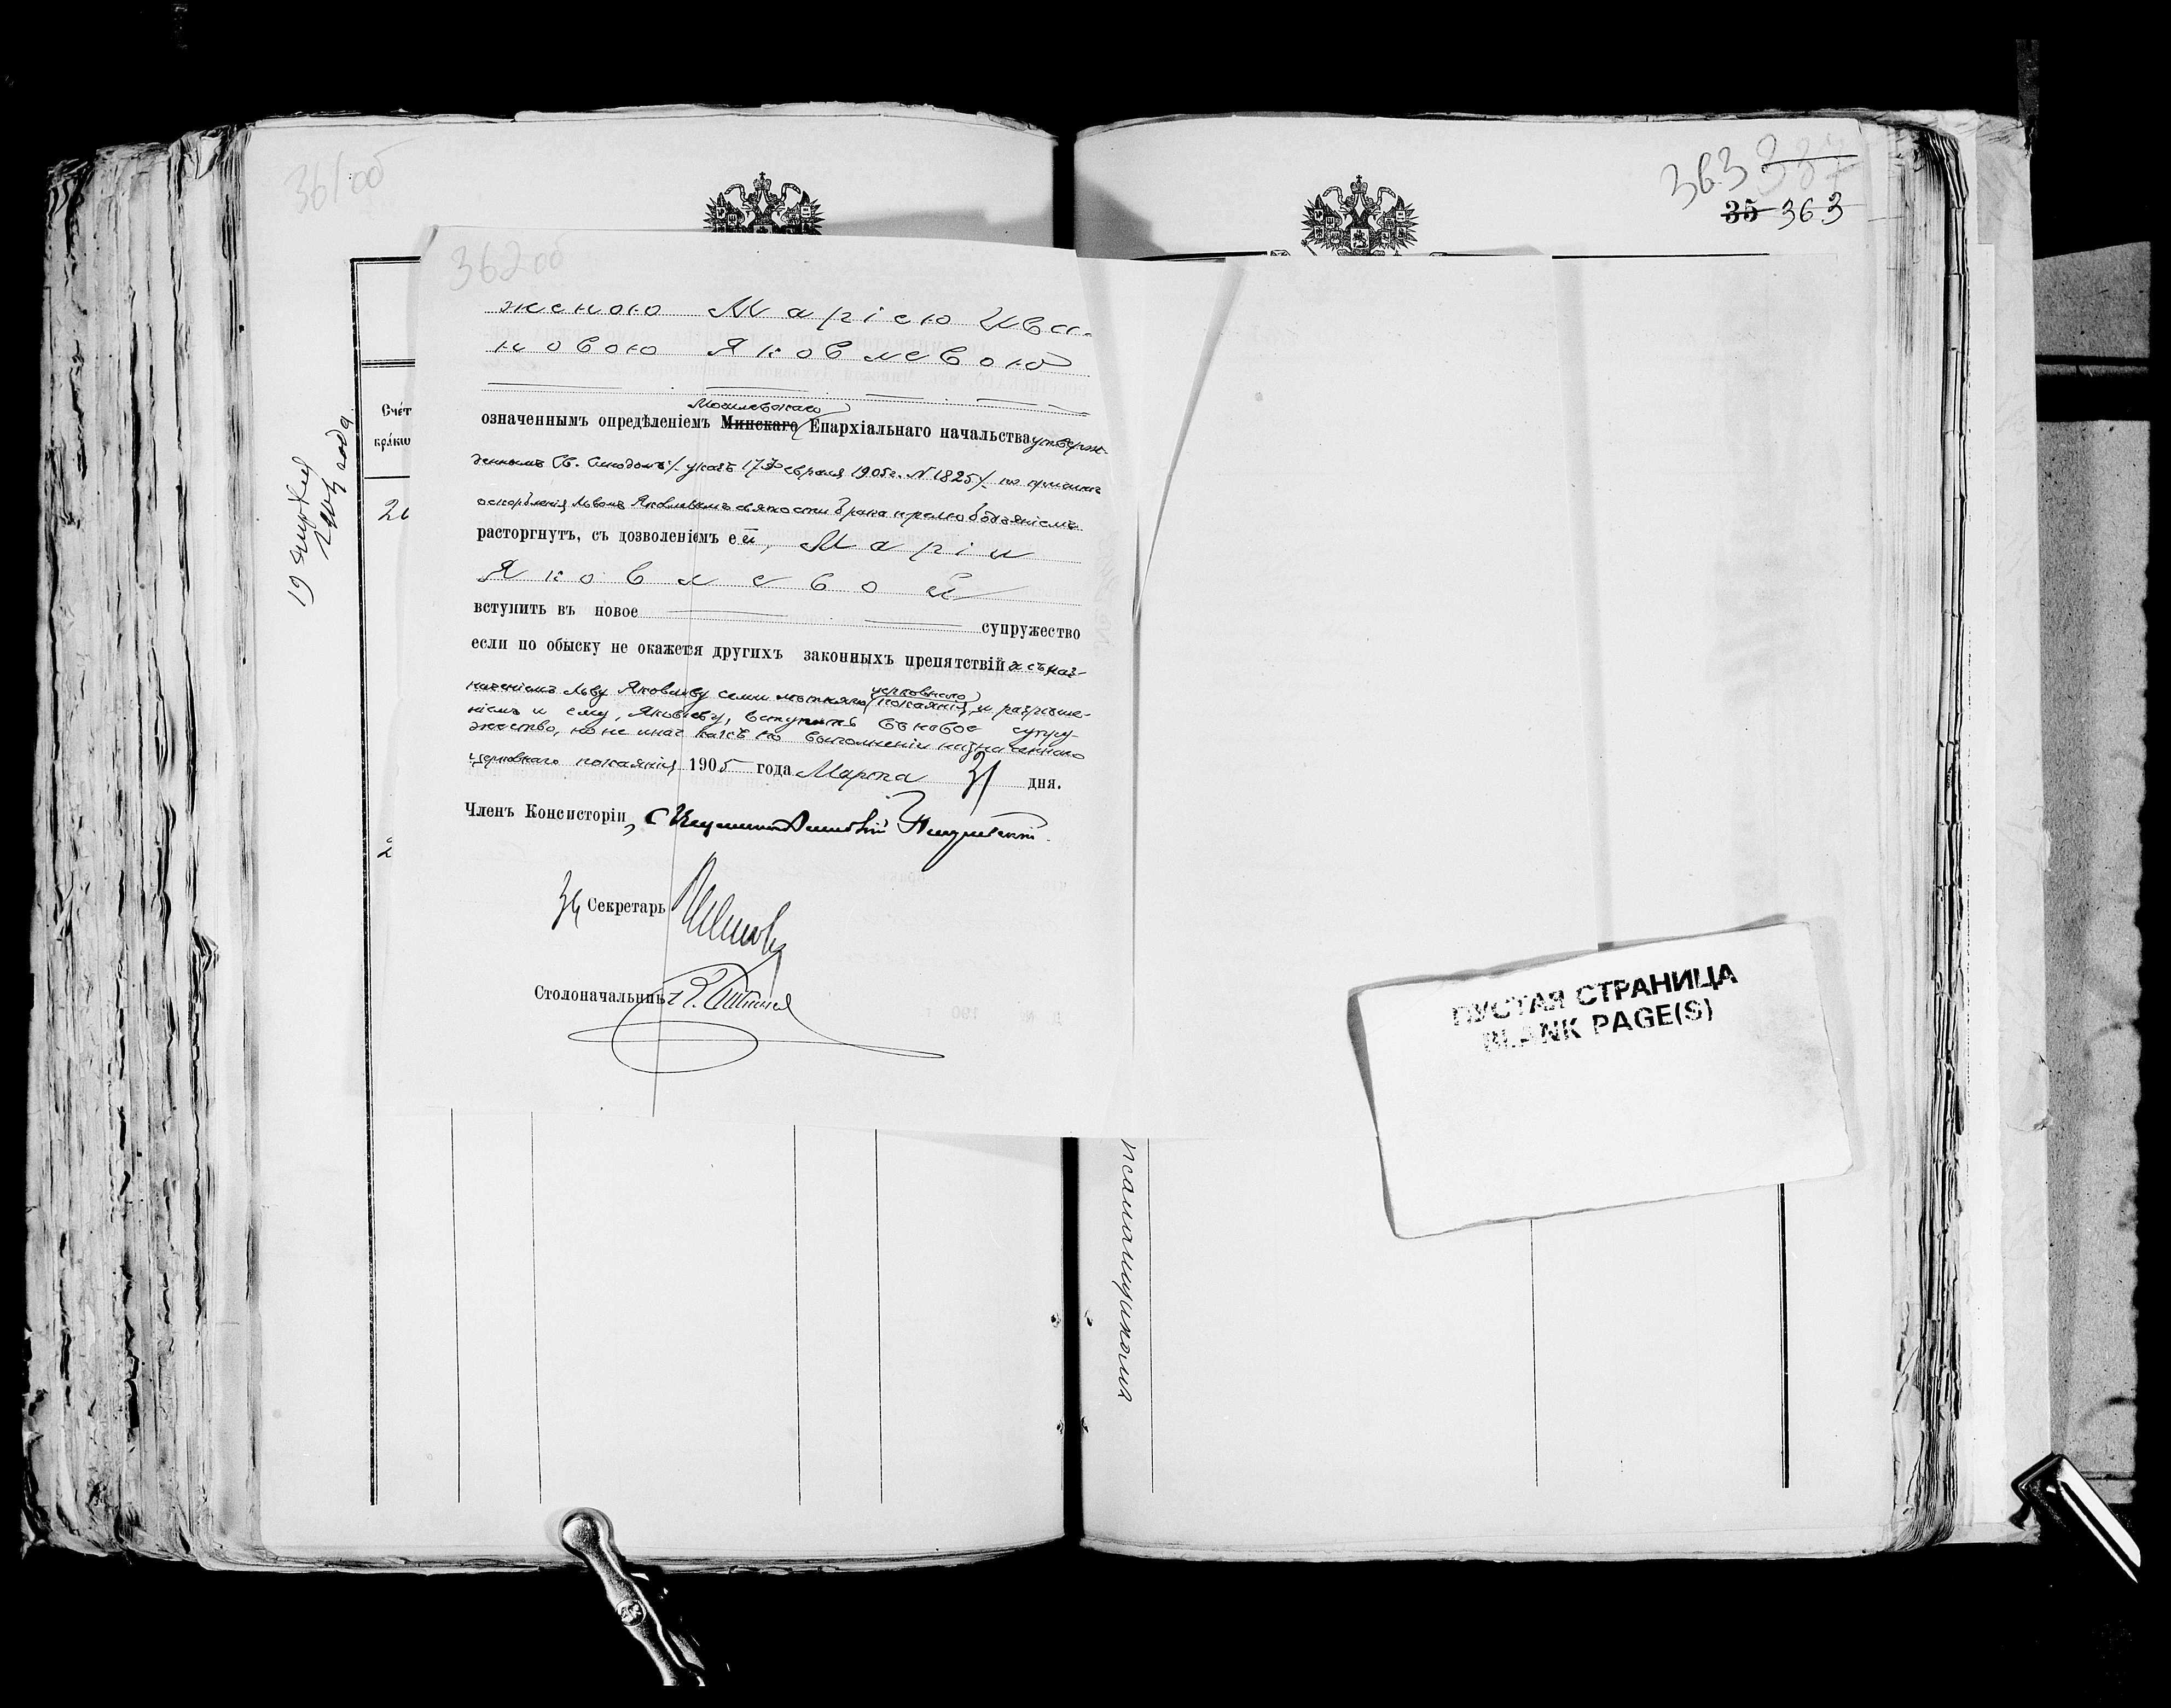 361об
362об
женою Маріею Ива-
новою Яковлевою
Могилевскаго
означеннымъ опредѣленіемъ Минскаго Епархіальнаго начальства утверж-
деннымъ Св. Синодомъ /. указъ 17 Февраля 1905 г. № 1825 /. по причинѣ
оскорбленія Львомъ Яковлевымъ святости брака прелюбодѣяніемъ
расторгнутъ, съ дозволеніемъ ей, Маріи
Яковлевой
вступить въ новое супружество
если по обыску не окажется другихъ законныхъ препятствій и съ наз-
церковнаго
наченіемъ Льву Яковлеву семилѣтняго покаянія и разрѣше-
ніемъ и ему, Яковлеву, вступить въ новое супру-
жество, но не иначе какъ по выполненіи назначеннаго
церковнаго покаянія 1905 года Марта 31 дня.
Членъ Консисторіи, Священникъ
За Секретарь
Столоначальникъ
Счетъ
брако
19
года
363 387
35 363
ПУСТАЯ СТРАНИЦА
BLANK PAGE(S)
псаломщикомъ